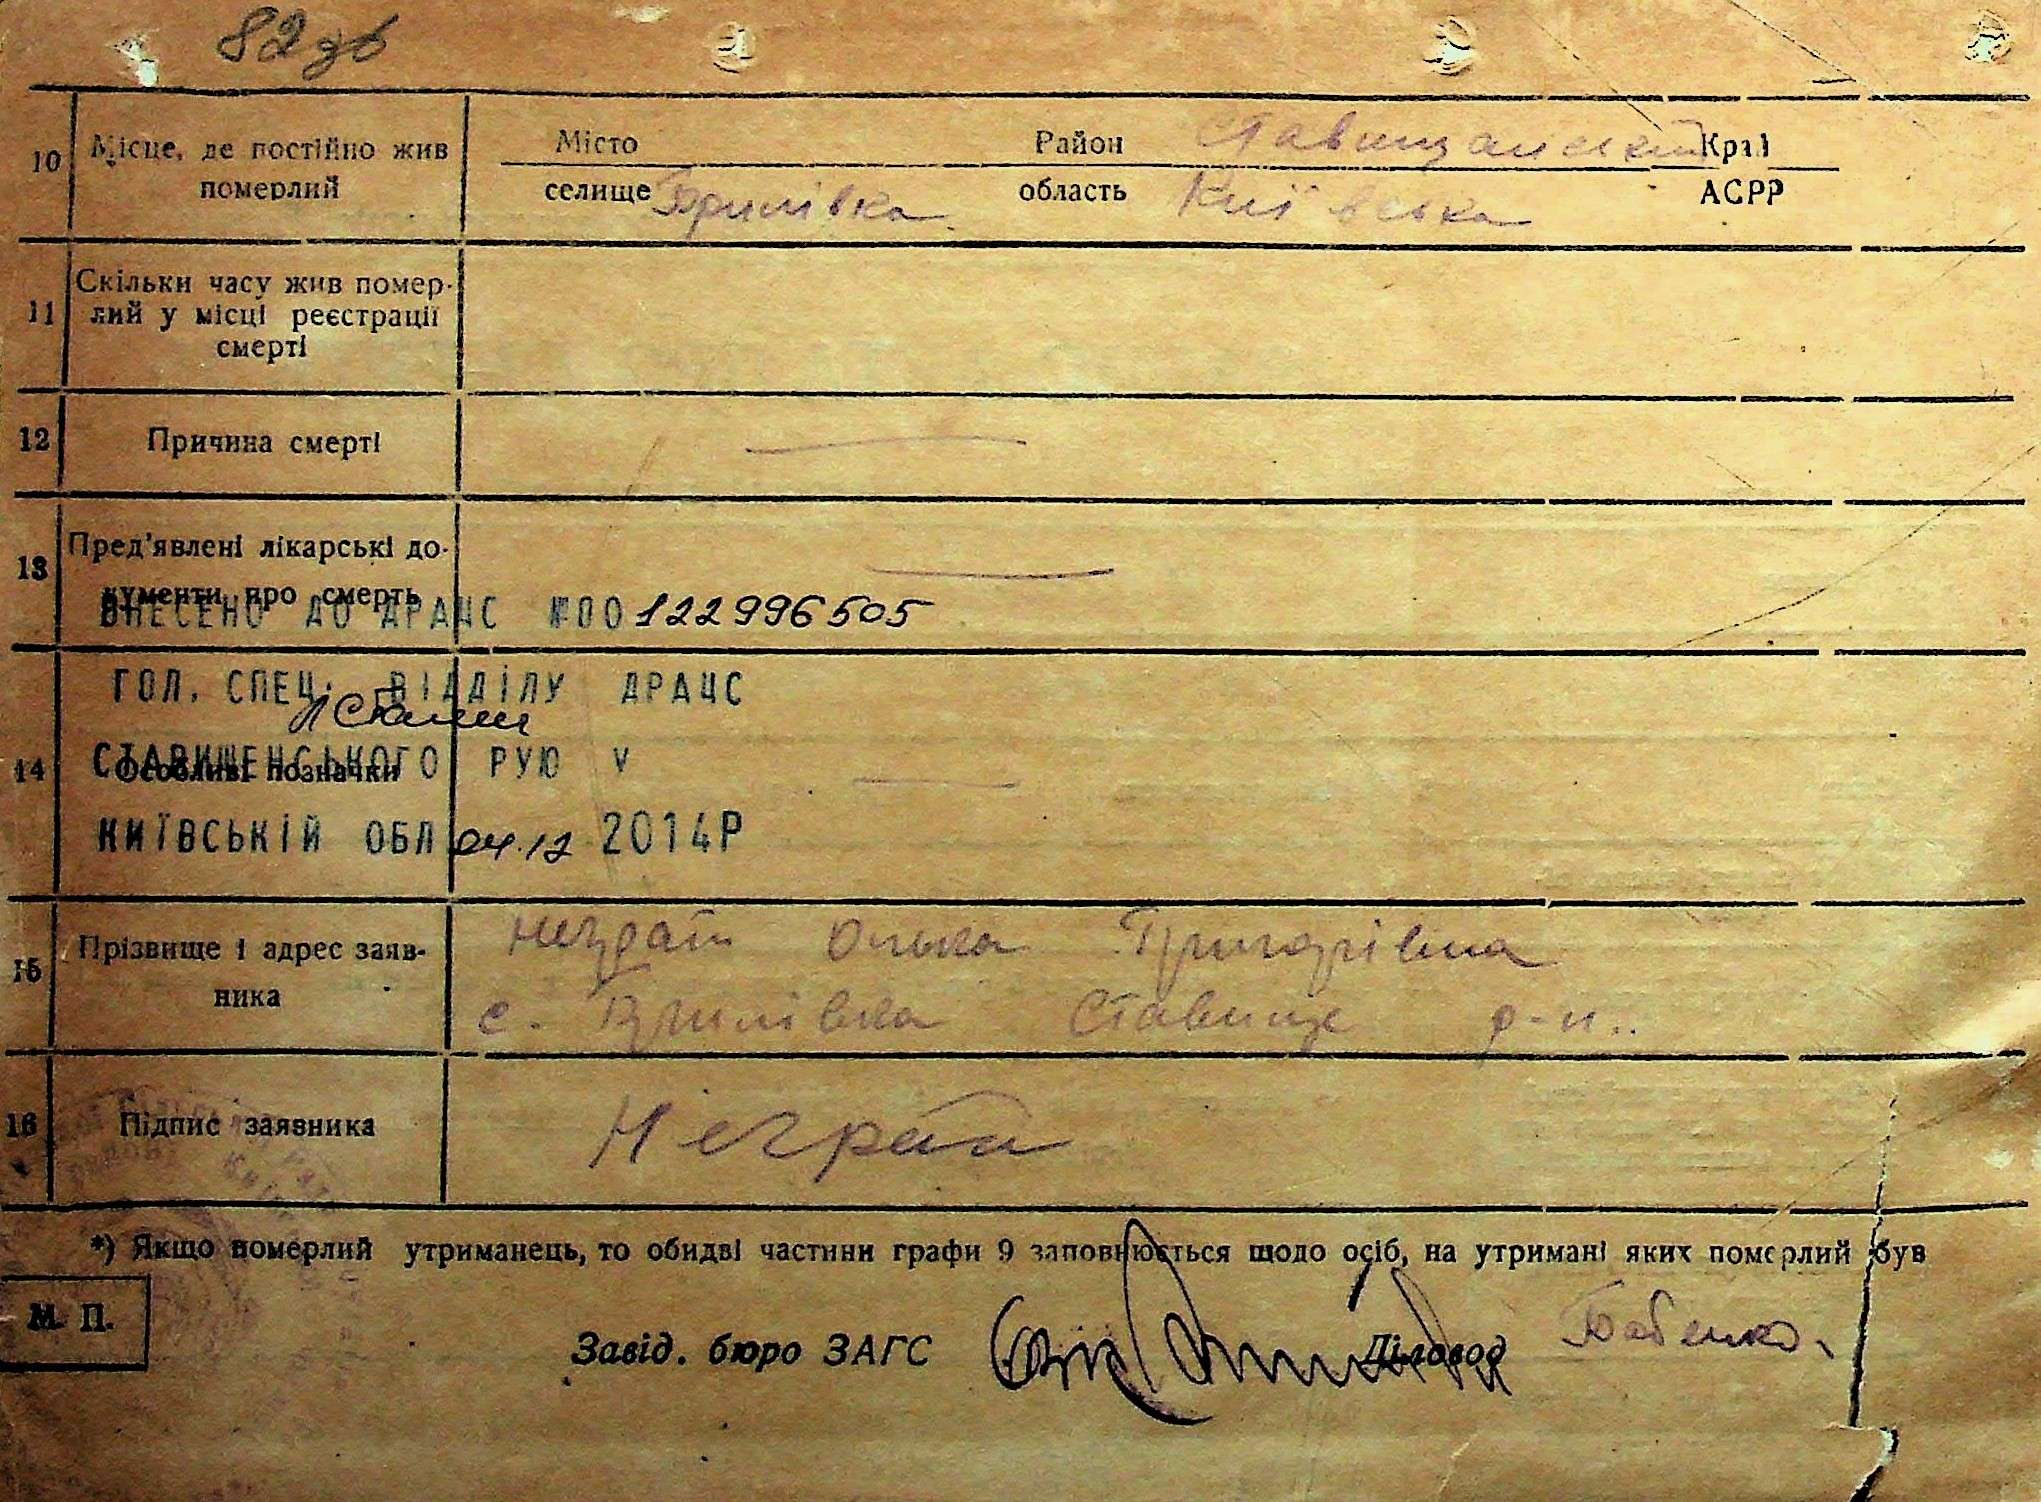 82 зв
10 Місце, де постійно жив померлий
Місто Район Ставищанський Край
селище область Київська АСРР
11 Скільки часу жив помер-
лий у місці реєстрації
смерті
12 Причина смерті
13 Пред'явлені лікарські до-
кументи про смерть
ВНЕСЕНО ДО ДРАЦС №00122996505
ГОЛ. СПЕЦ. ВІДДІЛУ ДРАЦС
СТАВИЩЕНСЬКОГО РУЮ У
14 Особливі позначки
КИЇВСЬКІЙ ОБЛ 04.12 2014Р
15 Прізвище і адрес заяв-
ника
Ольга Григорівна
с. Ставище р-н..
16 Підпис заявника
*) Якщо померлий утриманець, то обидві частини графи 9 заповнюється щодо осіб, на утримані яких померлий був
М. П.
Завід. бюро ЗАГС Діловод Бабенко